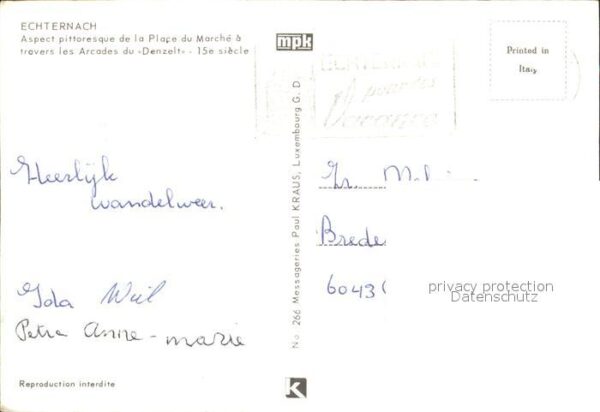 ECHTERNACH
Aspect pittoresque de la Place du Marché à
travers les Arcades du «Denzelt» - 15e siècle
mpk
Printed in
Italy
ECHTERNACH
Vacances
Heerlijk
wandelweer.
Ida Wiel
Petra Anne-marie
No 266 Messageries Paul KRAUS, Luxembourg G. D.
Brede
6043
privacy protection
Datenschutz
Reproduction interdite
K